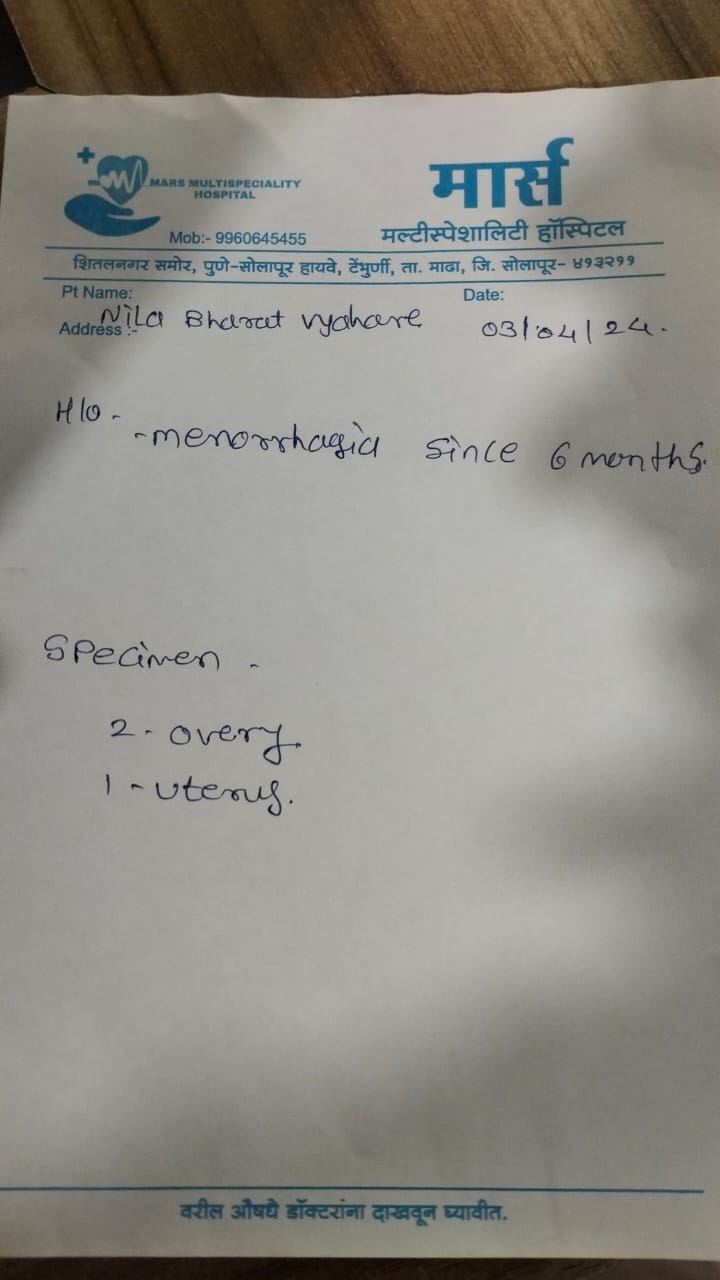 MARS MULTISPECIALITY
HOSPITAL
Mob:- 9960645455
मार्स
मल्टीस्पेशालिटी हॉस्पिटल
शितलनगर समोर, पुणे-सोलापूर हायवे, टेंभुर्णी, ता. माढा, जि. सोलापूर- ४१३२११
Pt Name: Date:
Address :- Nila Bharat vyahare 03/04/24.
H/O -
- menorrhagia since 6 months.
Specimen -
2 - overy.
1 - uterus.
वरील औषधे डॉक्टरांना दाखवून घ्यावीत.